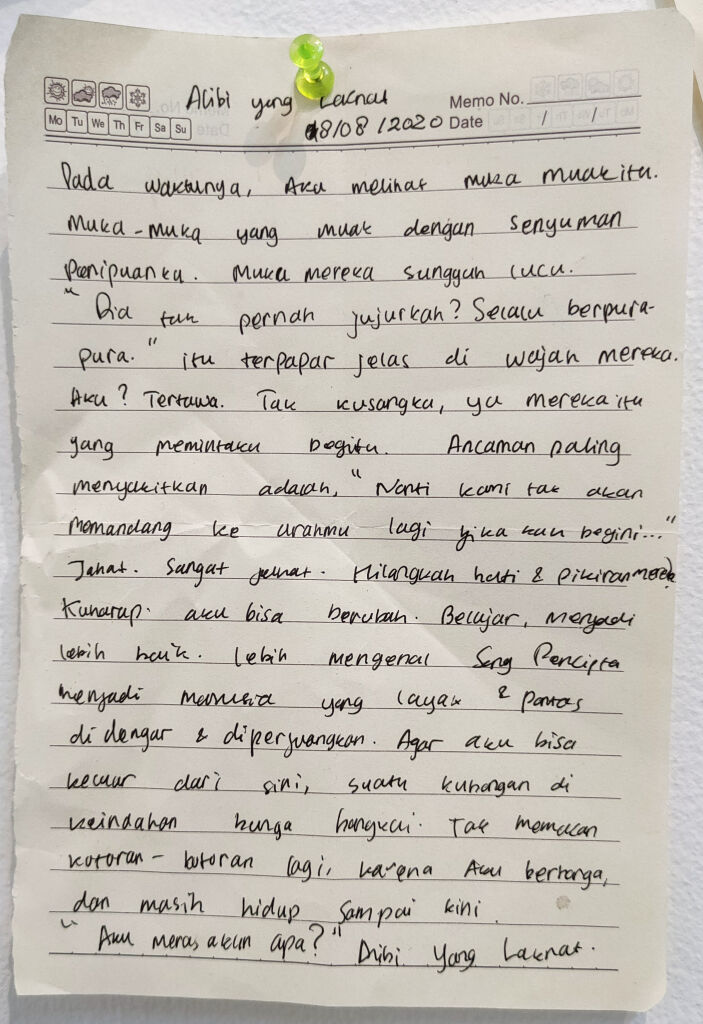 Alibi yang Laknat
Memo No.
Mo Tu We Th Fr Sa Su
08/08/2020 Date / /
Pada waktunya, Aku melihat muka muak itu.
Muka-muka yang muak dengan senyuman
Penipuanku. Muka mereka sungguh lucu.
"Dia tak pernah jujurkah? Selalu berpura-
pura." itu terpapar jelas di wajah mereka.
Aku? Tertawa. Tak kusangka, ya mereka itu
yang memintaku begitu. Ancaman paling
menyakitkan adalah, "Nanti kami tak akan
memandang ke arahmu lagi jika kau begini..."
Jahat. Sangat jahat. Hilangkah hati & pikiran mereka
Kuharap. aku bisa berubah. Belajar, menjadi
lebih baik. Lebih mengenal Sang Pencipta
Menjadi manusia yang layak & pantas
di dengar & diperjuangkan. Agar aku bisa
keluar dari sini, suatu kubangan di
keindahan bunga bangkai. Tak memakan
kotoran-kotoran lagi, karena Aku berharga,
dan masih hidup sampai kini.
"Aku merasakan apa?" Alibi Yang Laknat.